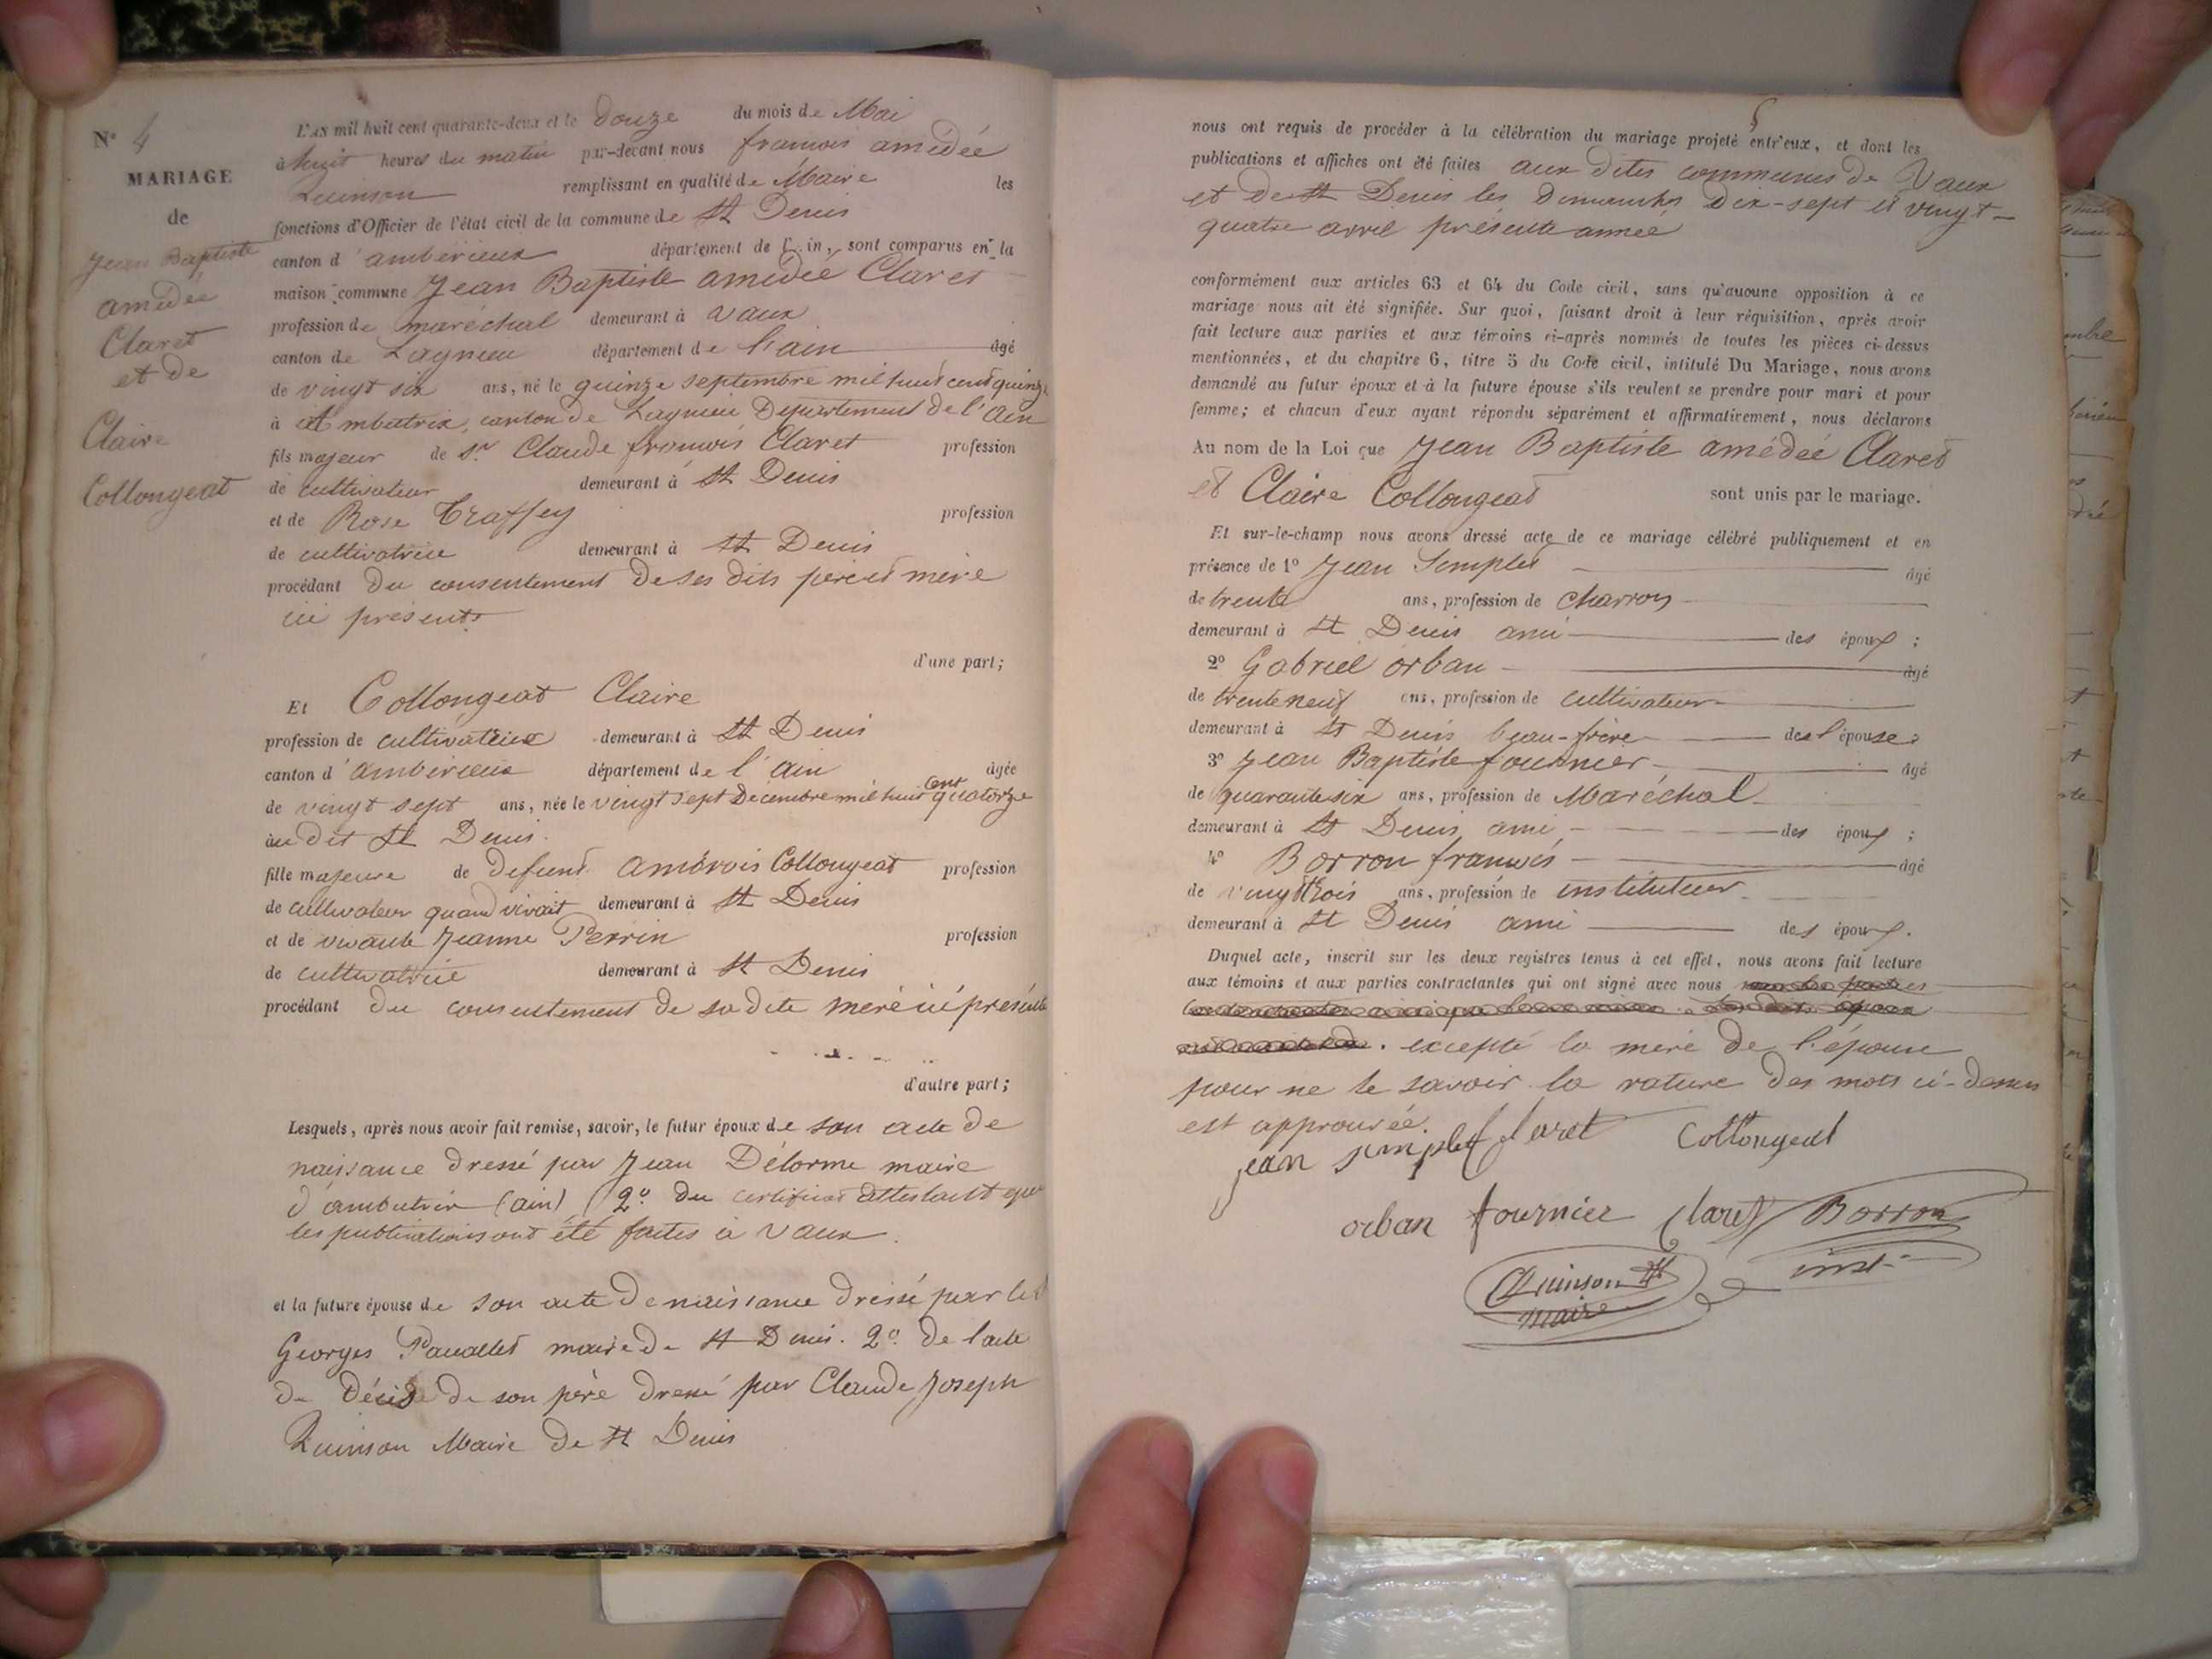 N° 4
MARIAGE
de
Jean Baptiste
amédée
Claret
et de
Claire
Collongeat
L'AN mil huit cent quarante-deux et le douze du mois de Mai
à huit heures du matin par-devant nous francois amédée
Quinson remplissant en qualité de Maire les
fonctions d'Officier de l'état civil de la commune de St Denis
canton d'ambérieux département de l'Ain, sont comparus en la
maison commune Jean Baptiste amédée Claret
profession de maréchal demeurant à Vaux
canton de Lagnieu département de l'ain âgé
de vingt six ans, né le quinze septembre mil huit cent quinze
à Ambutrix, canton de Lagnieu Département de l'Ain
fils majeur de sr Claude francois Claret profession
de cultivateur demeurant à St Denis
et de Rose Traffey profession
de cultivatrice demeurant à St Denis
procédant du consentement de ses dits père et mère
ici présents
d'une part;
Et Collongeat Claire
profession de cultivatrice demeurant à St Denis
canton d'ambérieux département de l'Ain âgée
de vingt sept ans, née le vingt sept Décembre mil huit cent quatorze
au dit St Denis
fille majeure de Defunt Ambrois Collongeat profession
de cultivateur quand vivait demeurant à St Denis
et de vivante Jeanne Perrin profession
de cultivatrice demeurant à St Denis
procédant du consentement de sa dite mère ici présente
d'autre part;
Lesquels, après nous avoir fait remise, savoir, le futur époux de son acte de
naissance dressé par Jean Délorme maire
d'ambutrix (ain) 2° du certificat attestant que
les publications ont été faites à Vaux.
et la future épouse de son acte de naissance dressé par
Georges maire de St Denis. 2° de l'acte
de Décès de son père dressé par Claude Joseph
Quinson Maire de St Denis
nous ont requis de procéder à la célébration du mariage projeté entr'eux, et dont les
publications et affiches ont été faites aux dites communes de Vaux
et de St Denis les dimanches Dix-sept et vingt-
quatre avril présente année
conformément aux articles 63 et 64 du Code civil, sans qu'aucune opposition à ce
mariage nous ait été signifiée. Sur quoi, faisant droit à leur réquisition, après avoir
fait lecture aux parties et aux témoins ci-après nommés de toutes les pièces ci-dessus
mentionnées, et du chapitre 6, titre 5 du Code civil, intitulé Du Mariage, nous avons
demandé au futur époux et à la future épouse s'ils veulent se prendre pour mari et pour
femme; et chacun d'eux ayant répondu séparément et affirmativement, nous déclarons
Au nom de la Loi que Jean Baptiste amédée Claret
et Claire Collongeat sont unis par le mariage.
Et sur-le-champ nous avons dressé acte de ce mariage célébré publiquement et en
présence de 1° Jean Simplet âgé
de trente ans, profession de charron
demeurant à St Denis ami des époux;
2° Gabriel orban âgé
de trente neuf ans, profession de cultivateur
demeurant à St Denis beau-frère de l'épouse;
3° Jean Baptiste fournier âgé
de quarante six ans, profession de Maréchal
demeurant à St Denis ami des époux;
4° Borron francois âgé
de vingt trois ans, profession de instituteur
demeurant à St Denis ami des époux.
Duquel acte, inscrit sur les deux registres tenus à cet effet, nous avons fait lecture
aux témoins et aux parties contractantes qui ont signé avec nous
excepté la mère de l'épouse
pour ne le savoir la rature des mots ci-dessus
est approuvée.
jean simplet Claret Collongeat
orban fournier Claret Borron
inst.
Quinson
maire